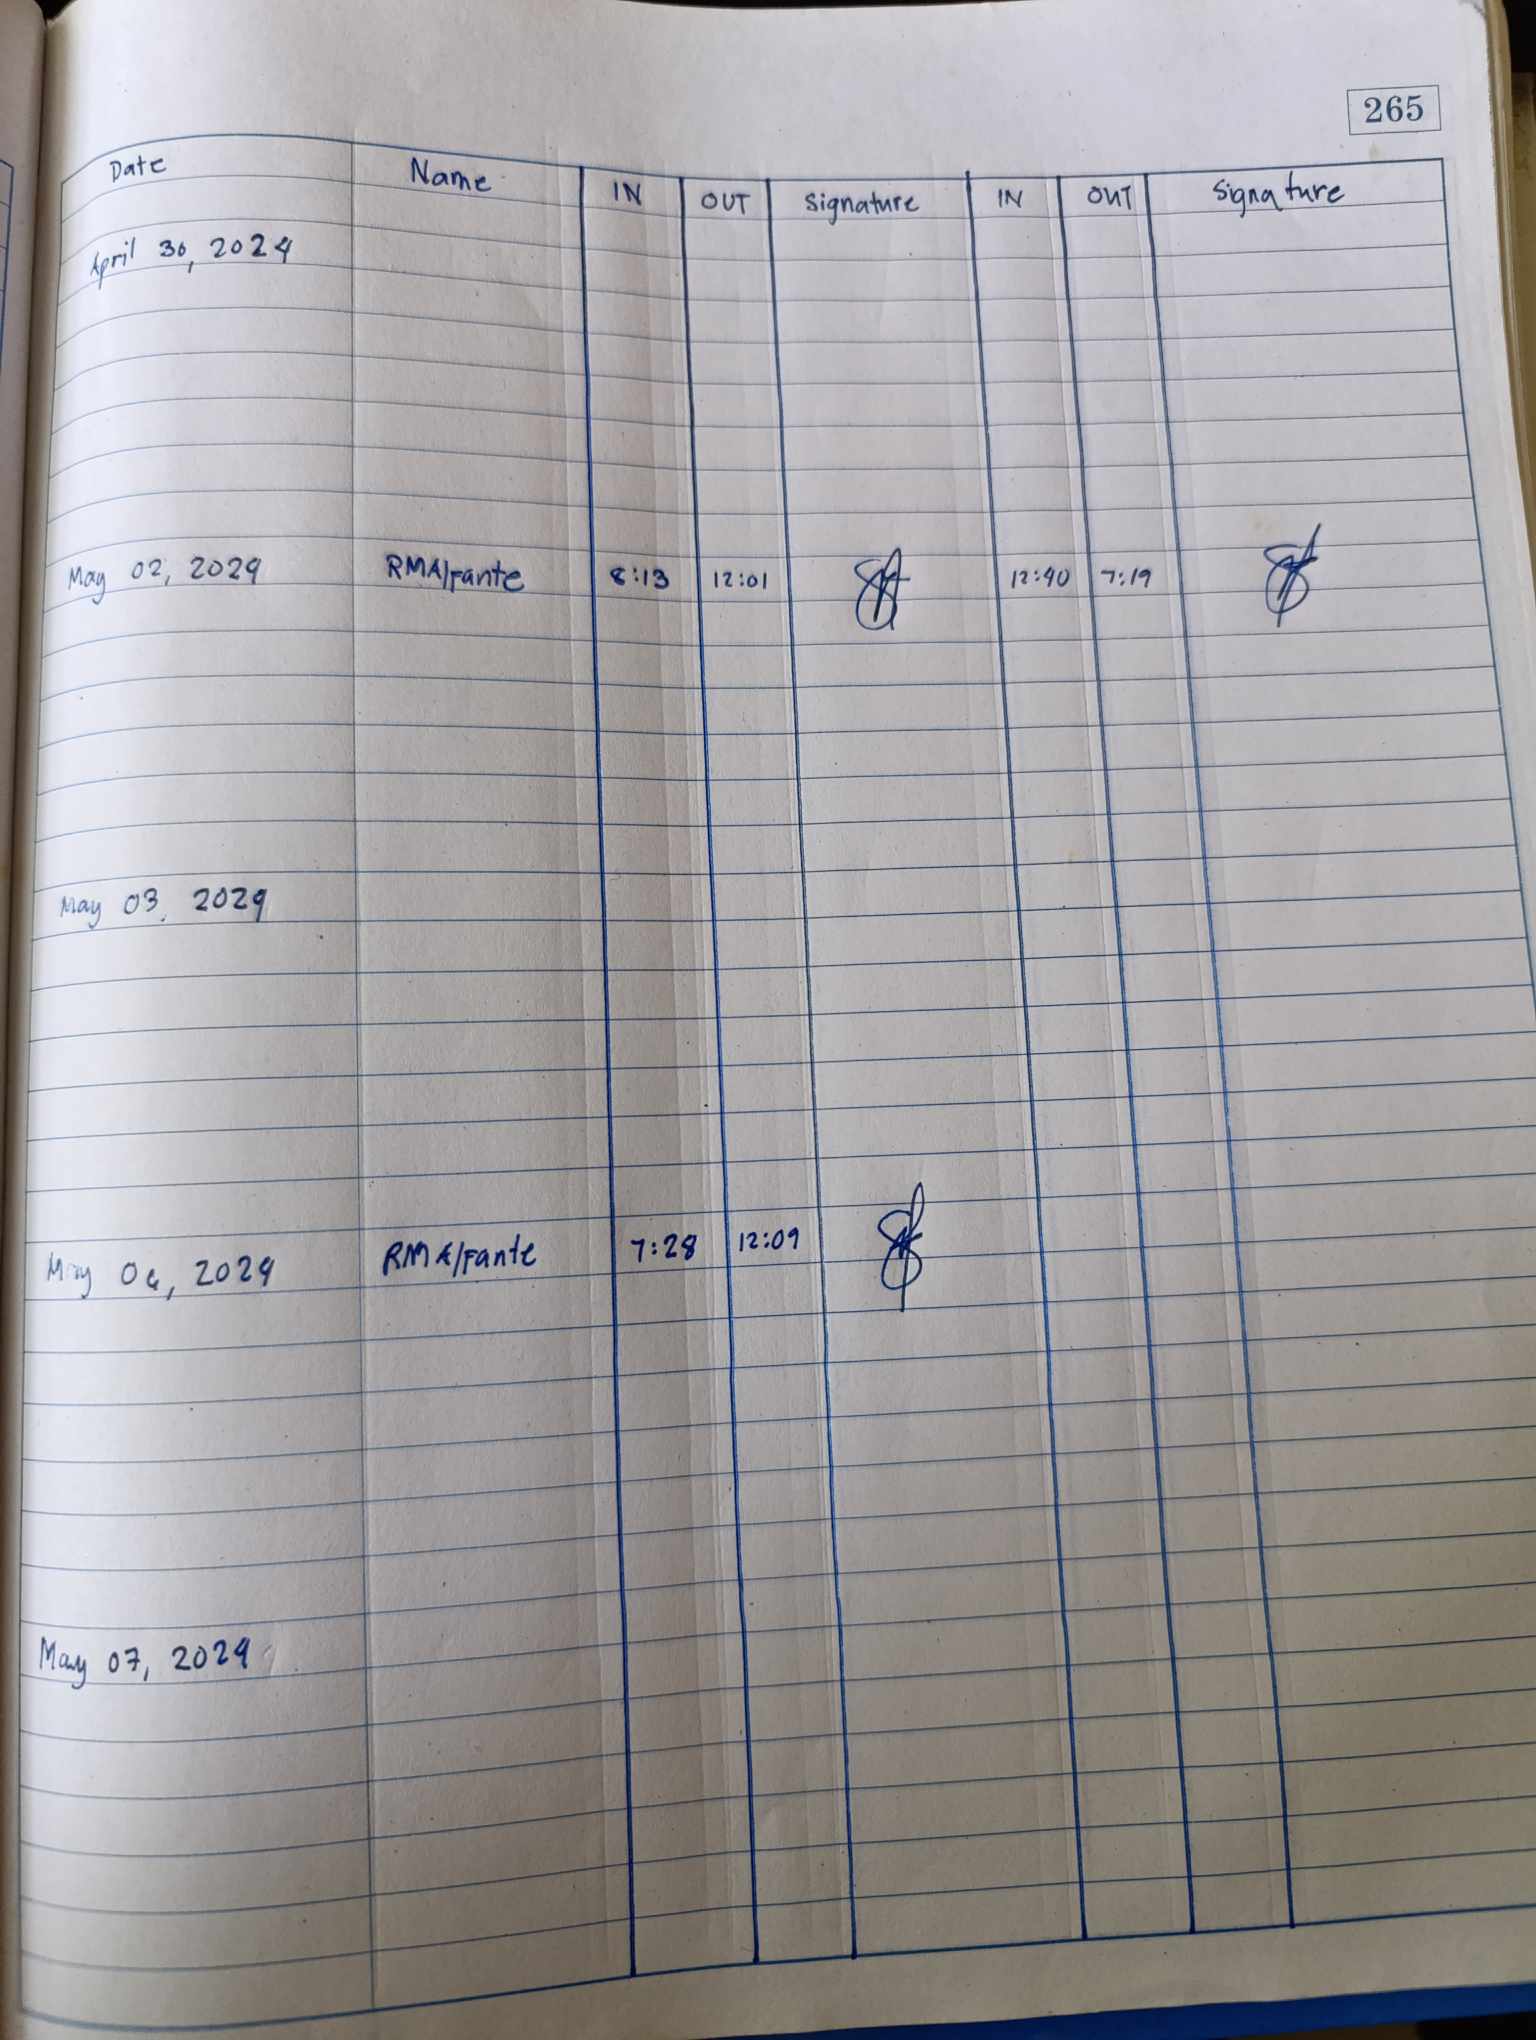 265
Date Name IN OUT Signature IN OUT Signature
April 30, 2024
May 02, 2024 RMAlfante 8:13 12:01 12:40 7:19
May 03, 2024
May 06, 2024 RMAlfante 7:28 12:09
May 07, 2024